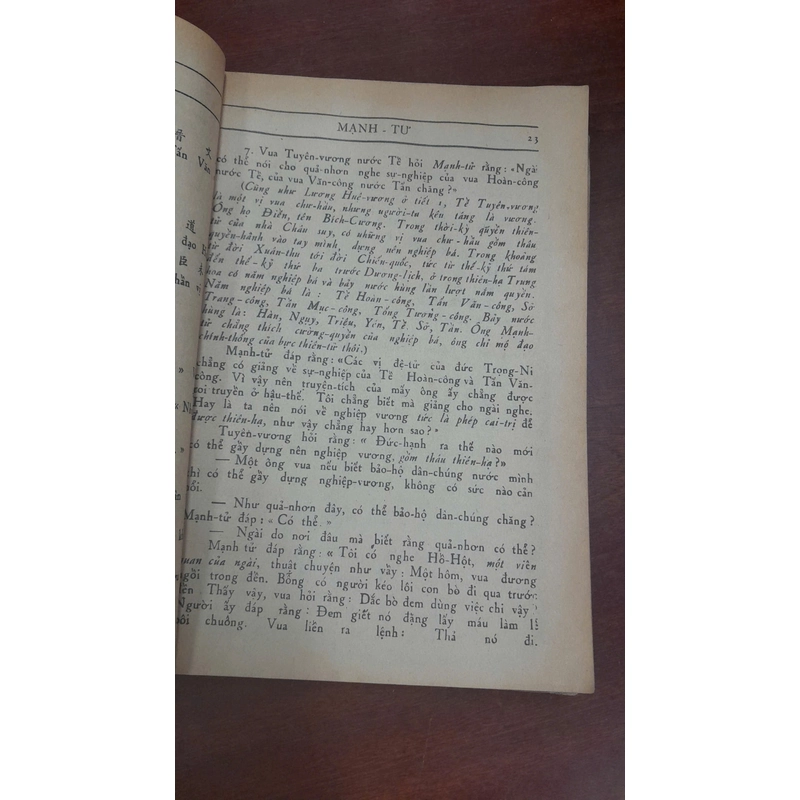 MẠNH - TƯ
23
7. Vua Tuyên-vương nước Tề hỏi Mạnh-tử rằng : «Ngài
có thể nói cho quả-nhơn nghe sự-nghiệp của vua Hoàn-công
nước Tề, của vua Văn-công nước Tấn chăng ?»
(Cũng như Lương Huệ-vương ở tiết 1, Tề Tuyên-vương
là một vị vua chư-hầu, nhưng người-ta kên táng là vương.
Ông họ Điền, tên Bích-Cương. Trong thời-kỳ quyền thiên-
tử của nhà Châu suy, có những vị vua chư-hầu gồm thâu
quyền-hành vào tay mình, dựng nên nghiệp bá. Trong khoảng
từ đời Xuân-thu tới đời Chiến-quốc, tức từ thế-kỷ thứ tám
đến thế-kỷ thứ ba trước Dương-lịch, ở trong thiên-hạ Trung
hoa có năm nghiệp bá và bảy nước hùng lần lượt nắm quyền.
Năm nghiệp bá là : Tề Hoàn-công, Tấn Văn-công, Sở
Trang-công, Tần Mục-công, Tống Tương-công. Bảy nước
hùng là: Hàn, Ngụy, Triệu, Yên, Tề, Sở, Tần. Ông Mạnh-
tử chẳng thích cường-quyền của nghiệp bá, ông chỉ mộ đạo
chính-thống của bực thiên-tử thôi.)
Mạnh-tử đáp rằng : «Các vị đệ-tử của đức Trọng-Ni
chẳng có giảng về sự-nghiệp của Tề Hoàn-công và Tấn Văn-
công. Vì vậy nên truyện-tích của mấy ông ấy chẳng được
roi truyền ở hậu-thế. Tôi chẳng biết mà giảng cho ngài nghe.
Hay là ta nên nói về nghiệp vương tức là phép cai-trị để
được thiên-hạ, như vậy chẳng hay hơn sao ?»
Tuyên-vương hỏi rằng : « Đức-hạnh ra thế nào mới
có thể gầy dựng nên nghiệp vương, gồm thâu thiên-hạ ?»
— Một ông vua nếu biết bảo-hộ dân-chúng nước mình
thì có thể gầy dựng nghiệp-vương, không có sức nào cản
nổi.
— Như quả-nhơn đây, có thể bảo-hộ dân-chúng chăng ?
Mạnh-tử đáp : « Có thể. »
— Ngài do nơi đâu mà biết rằng quả-nhơn có thể ?
Mạnh tử đáp rằng : « Tôi có nghe Hồ-Hột, một viên
quan của ngài, thuật chuyện như vầy : Một hôm, vua đương
ngồi trong đền. Bỗng có người kéo lôi con bò đi qua trước
đền. Thấy vậy, vua hỏi rằng : Dắc bò đem dùng việc chi vậy ?
Người ấy đáp rằng : Đem giết nó đặng lấy máu làm lễ
bôi chuông. Vua liền ra lệnh : Thả nó đi.